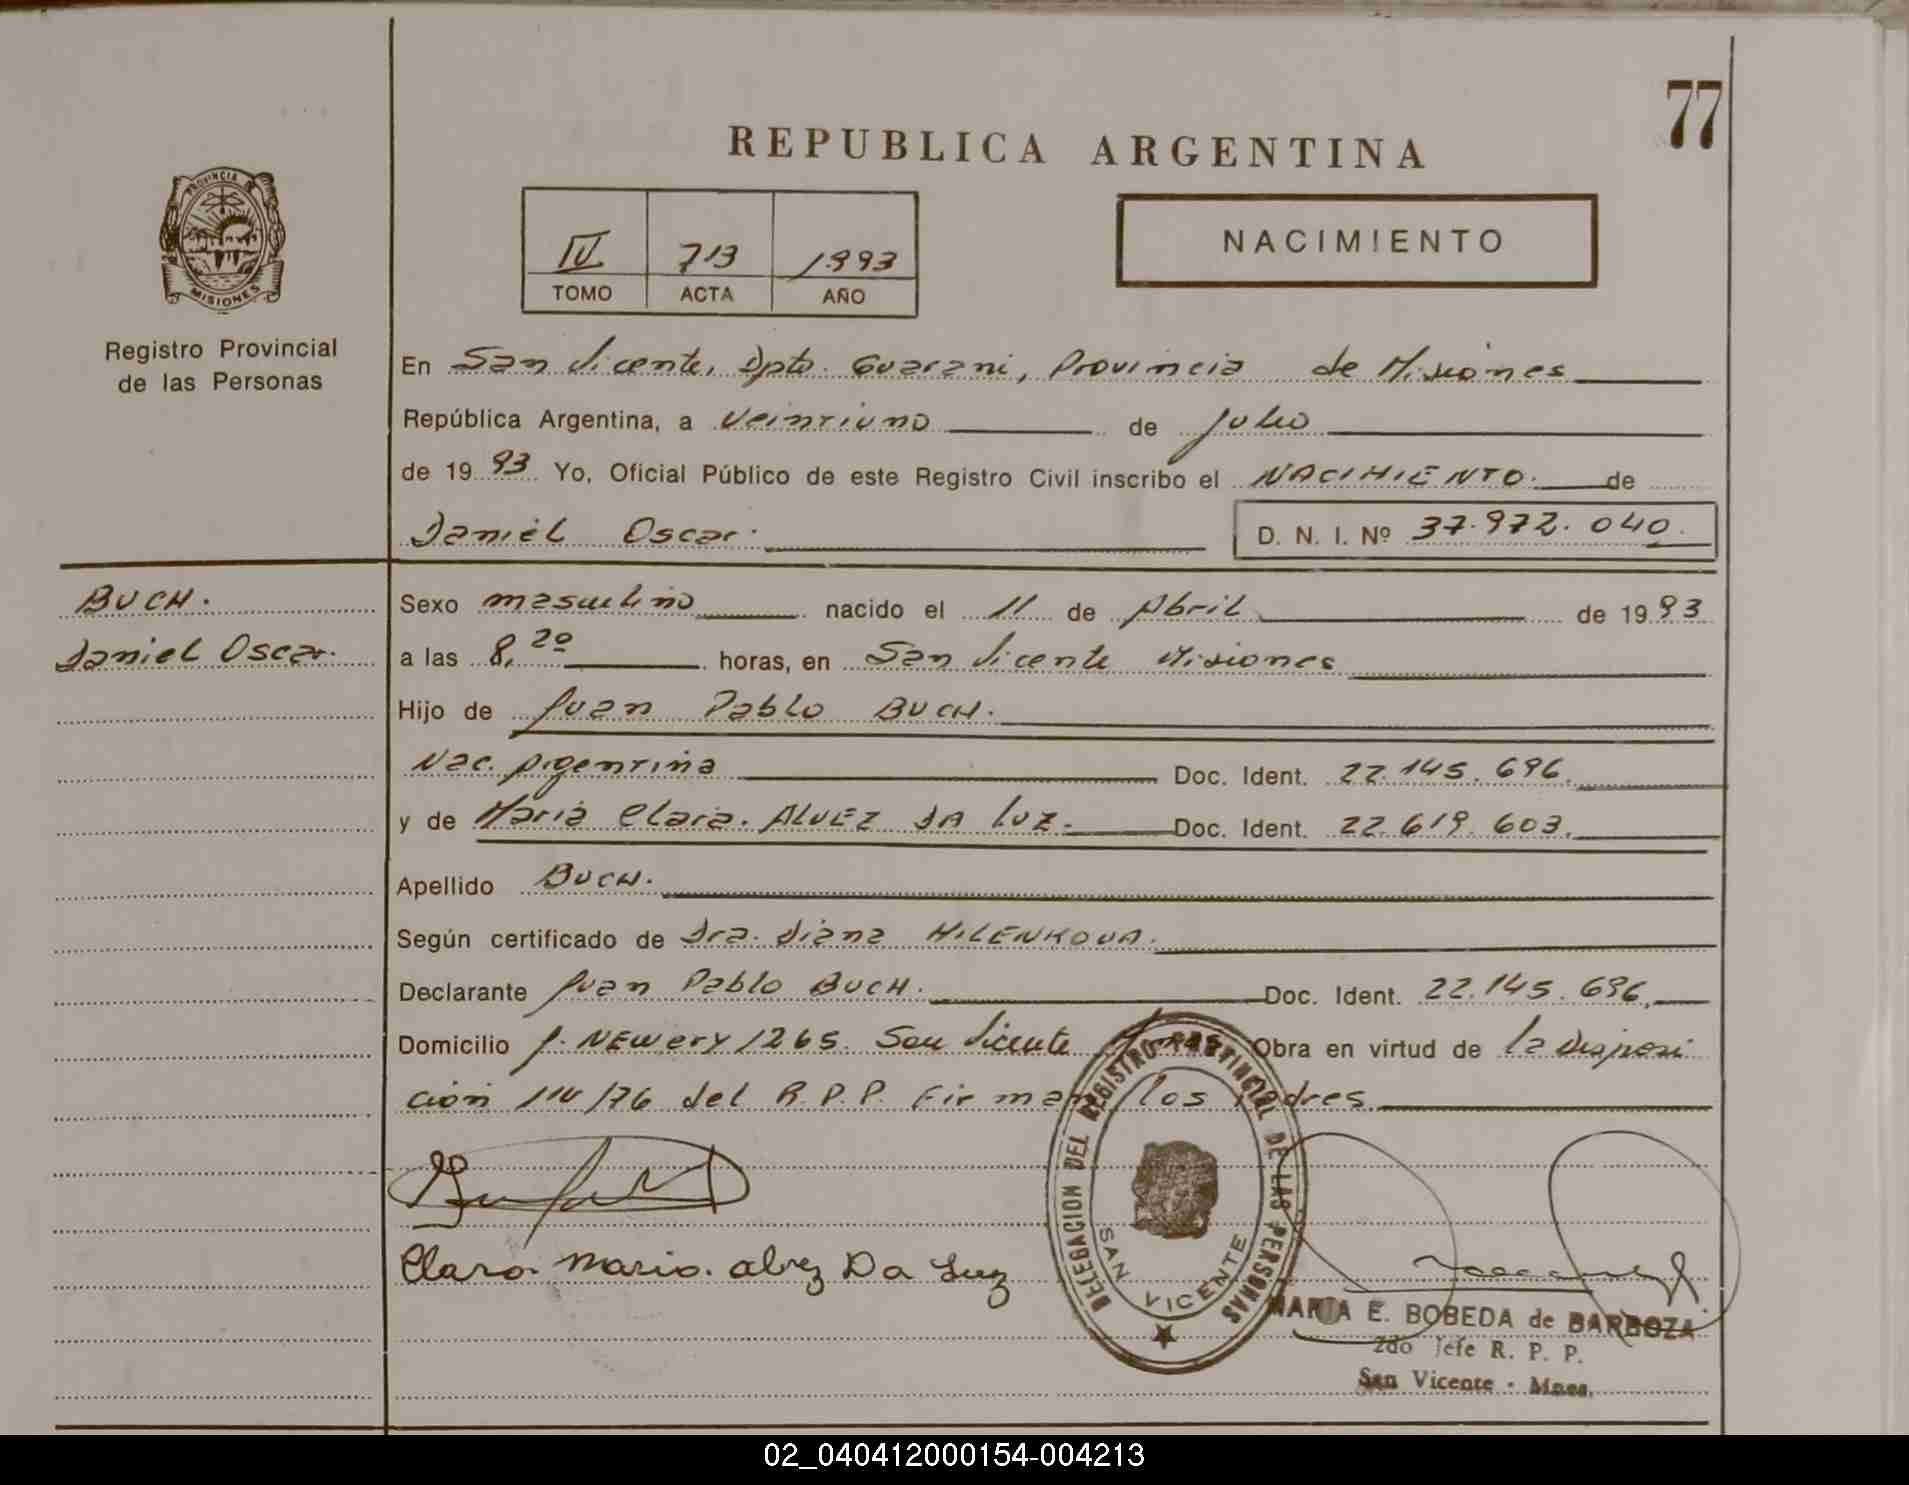 77
REPUBLICA ARGENTINA
PROVINCIA DE
MISIONES
Registro Provincial
de las Personas
IV 713 1993
TOMO ACTA AÑO
NACIMIENTO
En San Vicente, Dpto. Guarani, Provincia de Misiones
República Argentina, a veintiuno de Julio
de 1993 Yo, Oficial Público de este Registro Civil inscribo el NACIMIENTO. de
Daniel Oscar. D. N. I. Nº 37.972.040.
BUCH.
Daniel Oscar.
Sexo masculino nacido el 11 de Abril de 1993
a las 8,20 horas, en San Vicente Misiones
Hijo de Juan Pablo BUCH.
Nac. Argentina Doc. Ident. 22.145.696.
y de Maria Clara. ALVEZ DA LUZ. Doc. Ident. 22.619.603.
Apellido BUCH.
Según certificado de Dra. Diana MILENKOVA.
Declarante Juan Pablo BUCH. Doc. Ident. 22.145.696.
Domicilio J. NEWERY 1265. San Vicente Obra en virtud de la Disposi
ción 114/76 del R.P.P. Firman los padres
Claro Mario. alvez Da Luz
DELEGACION DEL REGISTRO PROVINCIAL DE LAS PERSONAS
SAN VICENTE
MARIA E. BOBEDA de BARBOZA
2do Jefe R. P. P.
San Vicente - Mnes.
02_040412000154-004213